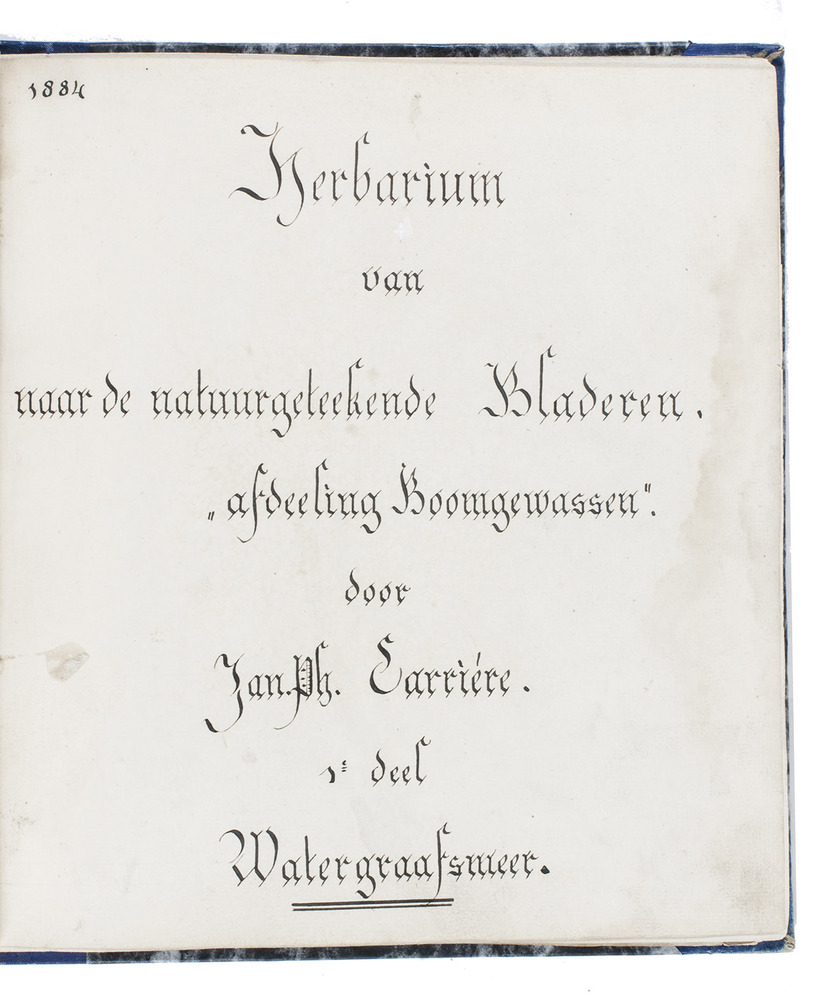 1884
Herbarium
van
naar de natuurgeteekende Bladeren.
„afdeeling Boomgewassen".
door
Jan. Ph. Carriére.
1e deel
Watergraafsmeer.